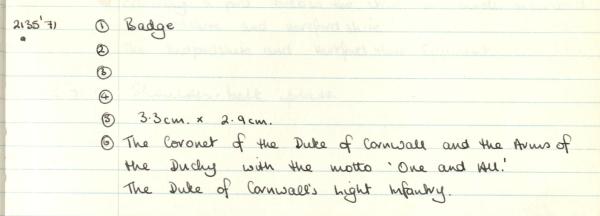 2135'71 ① Badge
②
③
④
⑤ 3.3cm. x 2.9cm.
⑥ The Coronet of the Duke of Cornwall and the Arms of
the Duchy with the motto 'One and All.'
The Duke of Cornwall's Light Infantry.